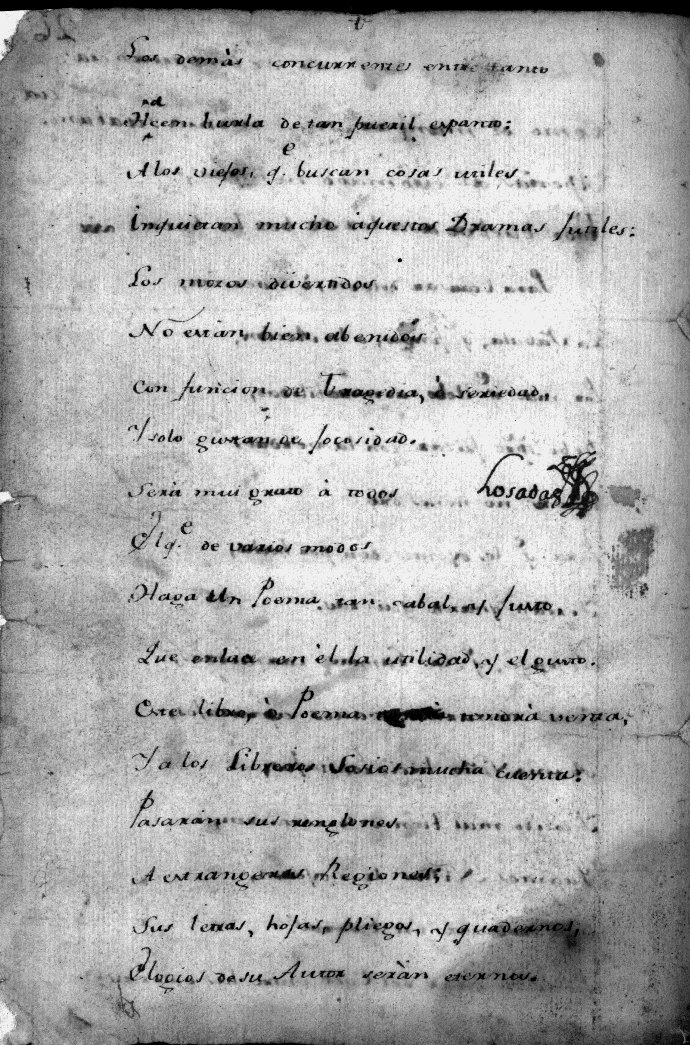 Los demàs concurrentes entre tanto
Hacen burla de tan pueril espanto:
A los viejos, q.e buscan cosas utiles
Inquietan mucho àquestos Dramas futiles:
Los mozos divertidos
No estàn bien abenidos
Con funcion de Tragedia, ò seriedad,
Y solo gustan de jocosidad.
Serà mui grato à todos
Losada
El q.e de varios modos
Haga Un Poema tan cabal, y justo
Que enlace en èl la utilidad, y el gusto.
Este libro, ò Poema tendrà venta,
Y a los Libreros Sosios mucha cuenta:
Pasaràn sus renglones
A extrangeras Regiones;
Sus letras, hojas, pliegos, y quadernos,
Elogios de su Autor seràn eternos.